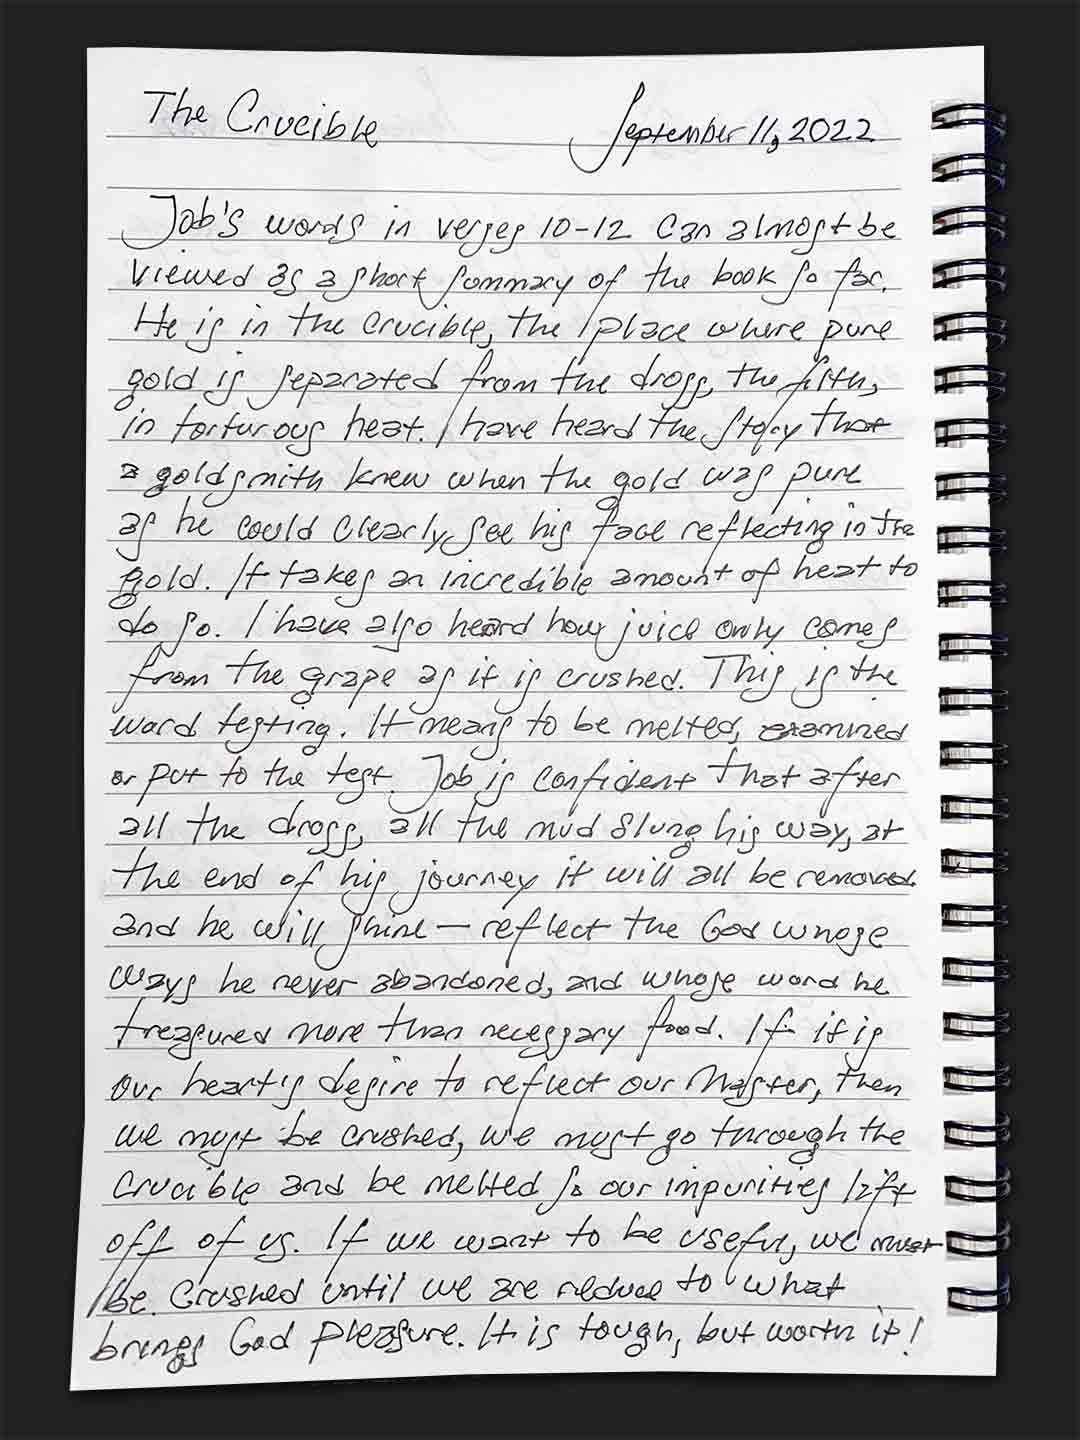 The Crucible September 11, 2022
Job's words in verses 10-12 can almost be
viewed as a short summary of the book so far.
He is in the crucible, the place where pure
gold is separated from the dross, the filth,
in torturous heat. I have heard the story that
a goldsmith knew when the gold was pure
as he could clearly see his face reflecting in the
gold. It takes an incredible amount of heat to
do so. I have also heard how juice only comes
from the grape as it is crushed. This is the
word testing. It means to be melted, examined
or put to the test. Job is confident that after
all the dross, all the mud slung his way, at
the end of his journey it will all be removed.
and he will shine — reflect the God whose
ways he never abandoned, and whose word he
treasured more than necessary food. If it is
our heart's desire to reflect our Master, then
we must be crushed, we must go through the
crucible and be melted so our impurities lift
off of us. If we want to be useful, we must
be crushed until we are reduce to what
brings God pleasure. It is tough, but worth it!